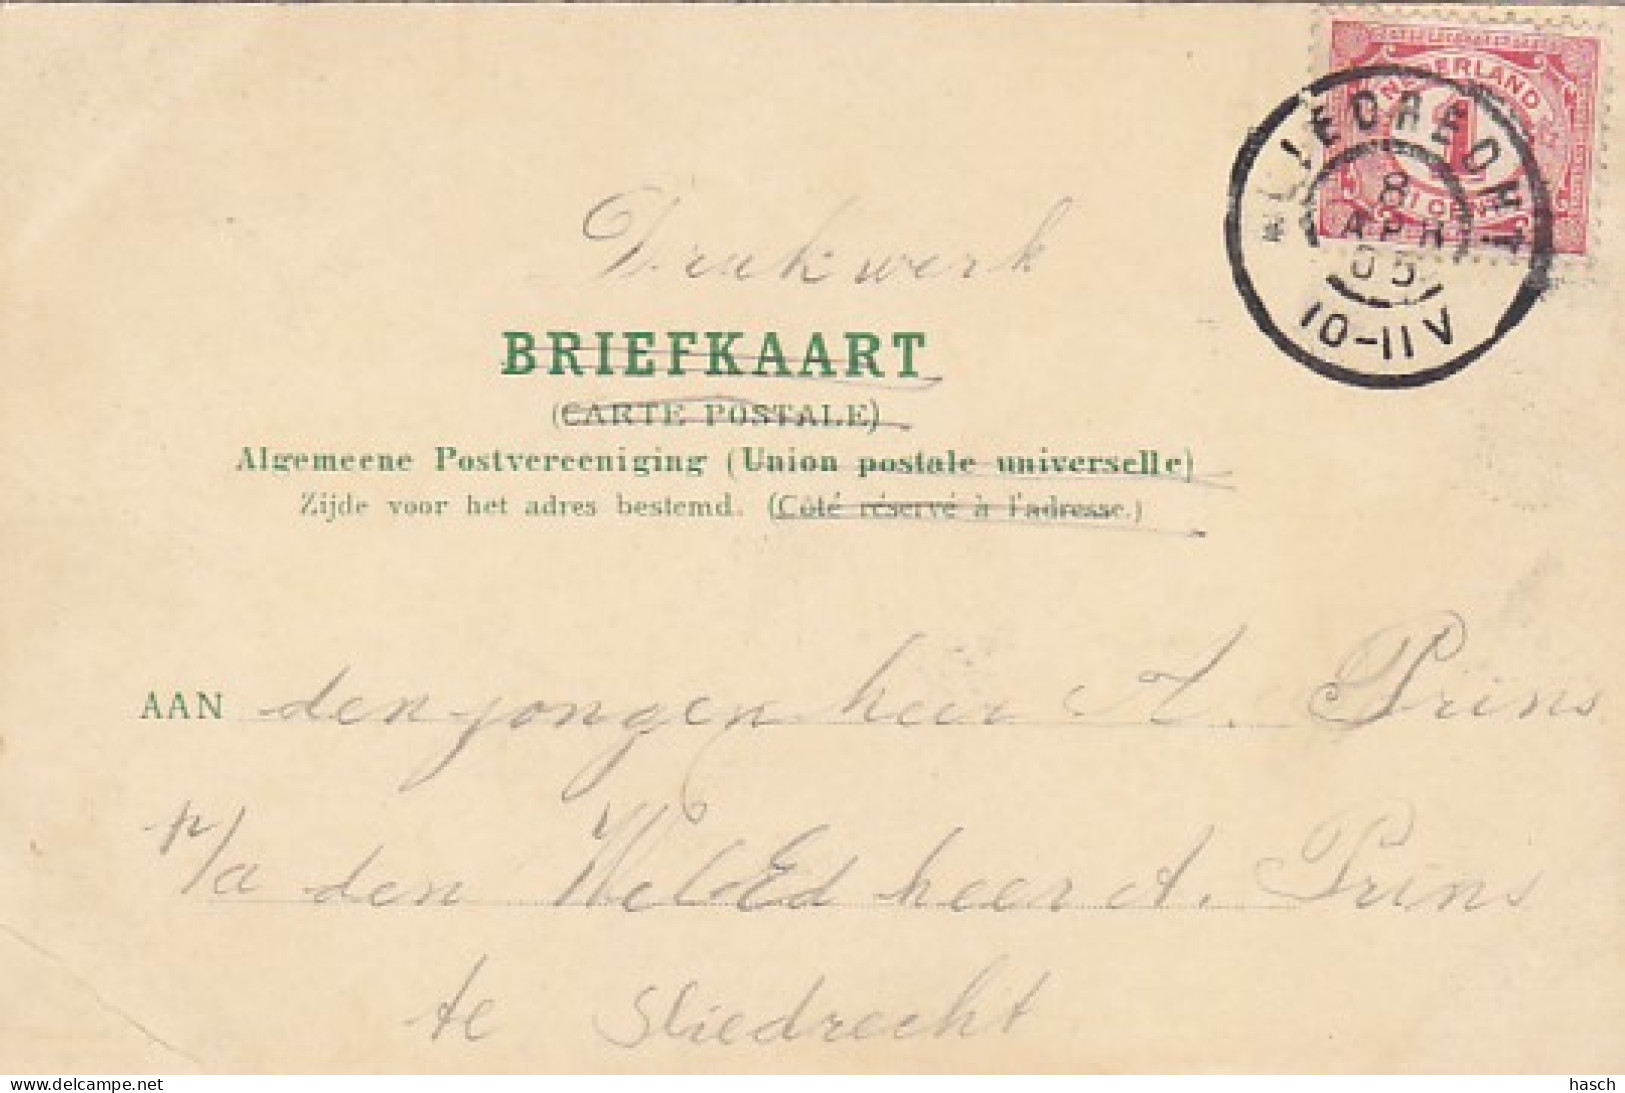 NEDERLAND
1
1 CENT
SLIEDRECHT
8
APR
05
10-11V
Drukwerk
BRIEFKAART
(CARTE POSTALE)
Algemeene Postvereeniging (Union postale universelle)
Zijde voor het adres bestemd. (Côté réservé à l'adresse.)
AAN den jongen heer A. Prins
p/a den WelEd heer A. Prins
te Sliedrecht
www.delcampe.net
hasch